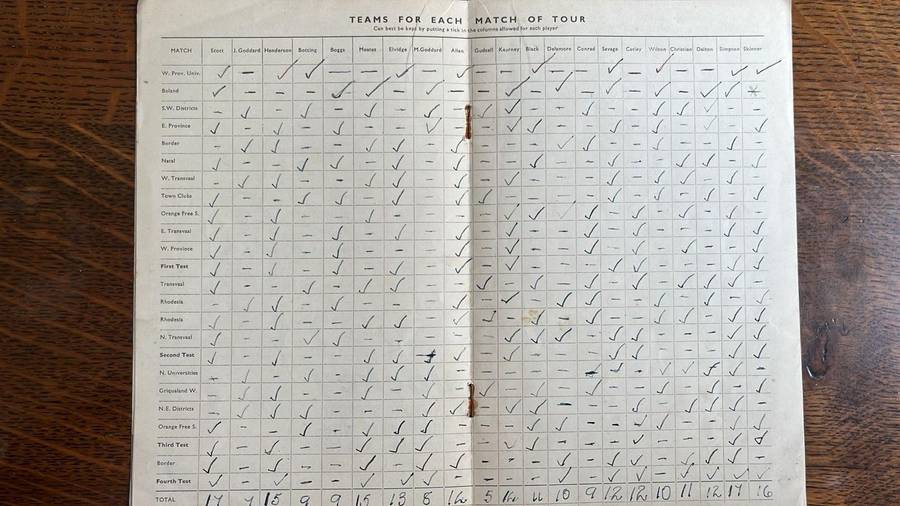 TEAMS FOR EACH MATCH OF TOUR
Can best be kept by putting a tick in the columns allowed for each player
MATCH Scott J. Goddard Henderson Botting Boggs Meates Elvidge M. Goddard Allen Gudsell Kearney Black Delamore Conrad Savage Catley Wilson Christian Dalton Simpson Skinner
W. Prov. Univ.
Boland
S.W. Districts
E. Province
Border
Natal
W. Transvaal
Town Clubs
Orange Free S.
E. Transvaal
W. Province
First Test
Transvaal
Rhodesia
Rhodesia
N. Transvaal
Second Test
N. Universities
Griqualand W.
N.E. Districts
Orange Free S.
Third Test
Border
Fourth Test
TOTAL 17 7 15 9 9 15 13 8 5 11 10 9 12 12 10 11 12 17 16